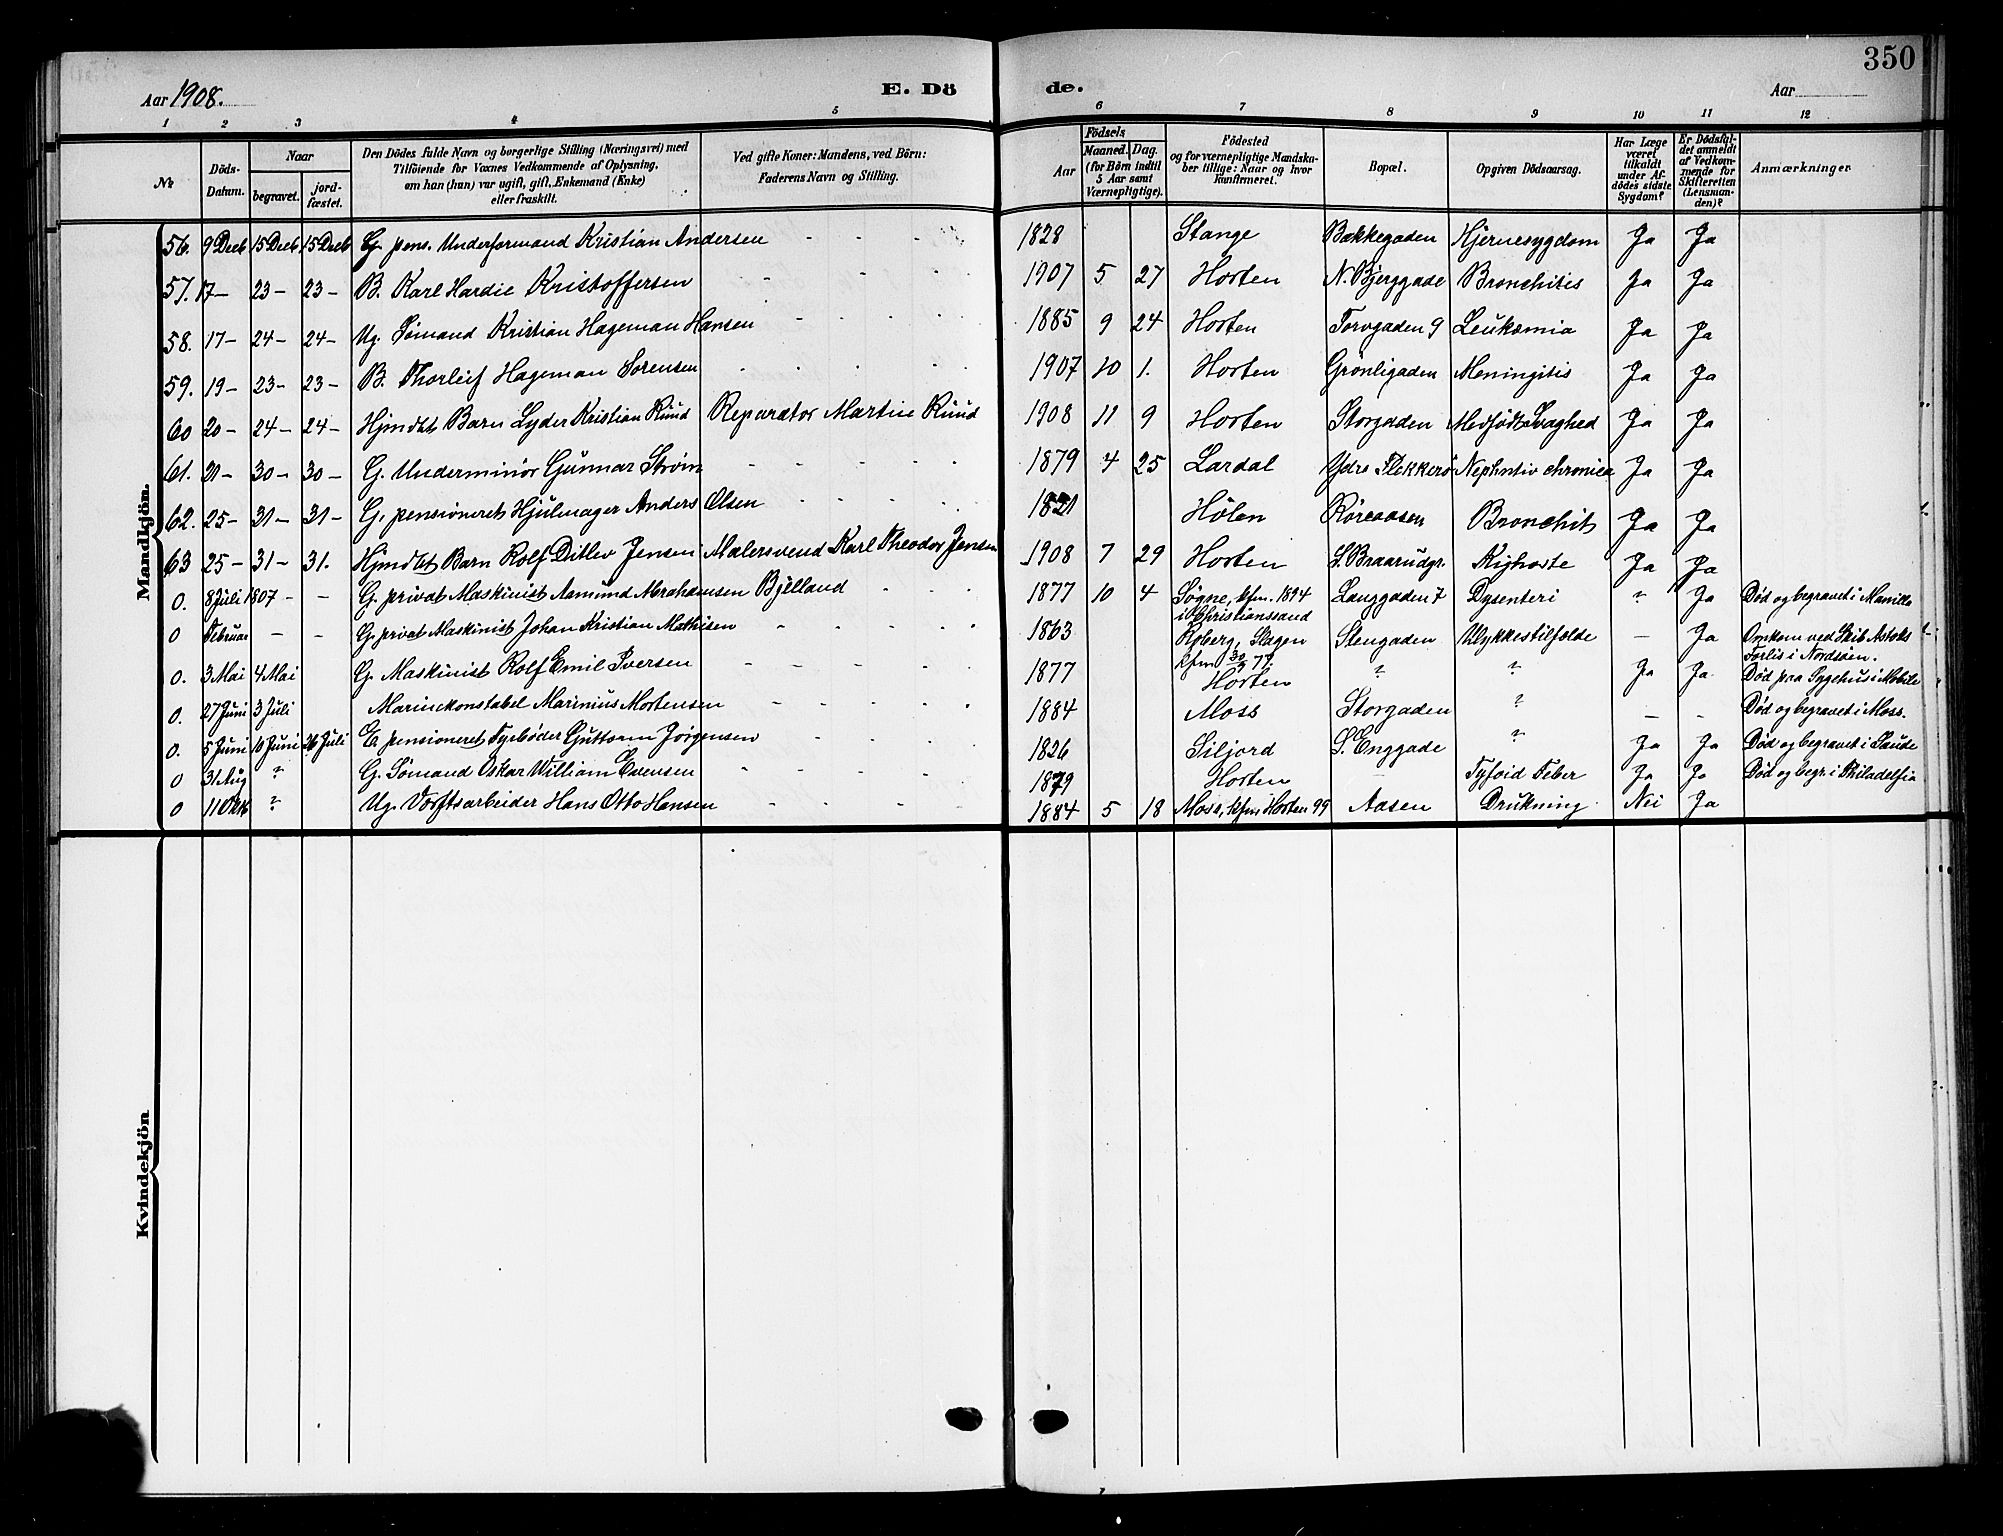 350
Aar 1908. E. Dö de. Aar
1 2 3 4 5 6 7 8 9 10 11 12
№ Döds-Datum. Naar begravet. jord-fæstet. Den Dödes fulde Navn og borgerlige Stilling (Næringsvei) med Tilföiende for Voxnes Vedkommende af Oplysning, om han (hun) var ugift, gift, Enkemand (Enke) eller fraskilt. Ved gifte Koner: Mandens, ved Börn: Faderens Navn og Stilling. Aar Födsels Maaned. Dag. (for Börn indtil 5 Aar samt Værnepligtige). Födested og for værnepligtige Mandskaber tillige: Naar og hvor konfirmeret. Bopæl. Opgiven Dödsaarsag. Har Læge været tilkaldt under Afdödes sidste Sygdom? Er Dödsfaldet anmeldt af Vedkommende for Skifteretten (Lensmanden)? Anmærkninger
Mandkjön.
56. 9 Decb 15 Decb 15 Decb G. pens. Underformand Kristian Andersen - - - - 1828 Stange Bækkegaden Hjernesygdom Ja Ja
57. 17- 23- 23- B. Karl Hardie Kristoffersen - - - - 1907 5 27 Horten N. Bjerggade Bronchitis Ja Ja
58. 17- 24- 24- Ug. Sømand Kristian Hageman Hansen - - - - 1885 9 24 Horten Torvgaden 9 Leukæmia Ja Ja
59. 19- 23- 23- B. Thorleif Hageman Sorensen - - - - 1907 10 1. Horten Grønligaden Meningitis Ja Ja
60 20- 24- 24- Hjmdbt Barn Lyder Kristian Ruud Reparatør Martin Ruud 1908 11 9 Horten Storgaden Medfødt Svaghed Ja Ja
61. 21- 30- 30- G. Underminør Gunnar Strøm - - - - 1879 4 25 Lardal Ydre Flekkerø Ja Ja
62. 25- 31- 31- G. pensioneret Hjulmager Anders Olsen - - - 1821 Hølen Røreaasen Bronchit Ja Ja
63 25- 31- 31. Hjmdbt Barn Rolf Ditlev Jensen Malersvend Karl Theodor Jensen 1908 7 29 Horten S. Braarudgr. Kighoste Ja Ja
0. 8 Juli 1907 - - G. privat Maskinist Aamund Abrahamsen Bjelland - - - 1877 10 4 Søgne, kfm. 1894 i Christianssand Langgaden 7 Dysenteri ? Ja Død og begravet i Manilla
0 Februar - - G. privat Maskinist Johan Kristian Mathisen - - - - 1863 Roberg, Slagen kfm 30/9 77. Stengaden Ulykkestilfælde - Ja Omkom ved Skib Forlis i Nordsøen.
0. 3 Mai 4 Mai G. Maskinist Rolf Emil Iversen - - - - 1877 Horten ? ? Ja Ja Død paa Sygehus i Mobile
0. 27 Juni 3 Juli Marinekonstabel Marinius Mortensen - - - - 1884 Moss Storgaden ? - - Død og begravet i Moss.
0. 5 Juni 10 Juni 26 Juli E. pensioneret Fyrbøder Guttorm Jørgensen - - - 1826 Siljord S. Enggade ? Ja Ja Død og begravet i Saude
0 31 Aug ? G. Sømand Oskar William Evensen - - - - 1879 Horten - Tyfoid Feber Ja Ja Død og begr. i Philadelfia
0 11 Oktb ? Ug. Værftsarbeider Hans Otto Hansen - - - - 1884 5 18 Moss, kfm Horten 99 Aasen Drukning Nei Ja
Kvindekjön